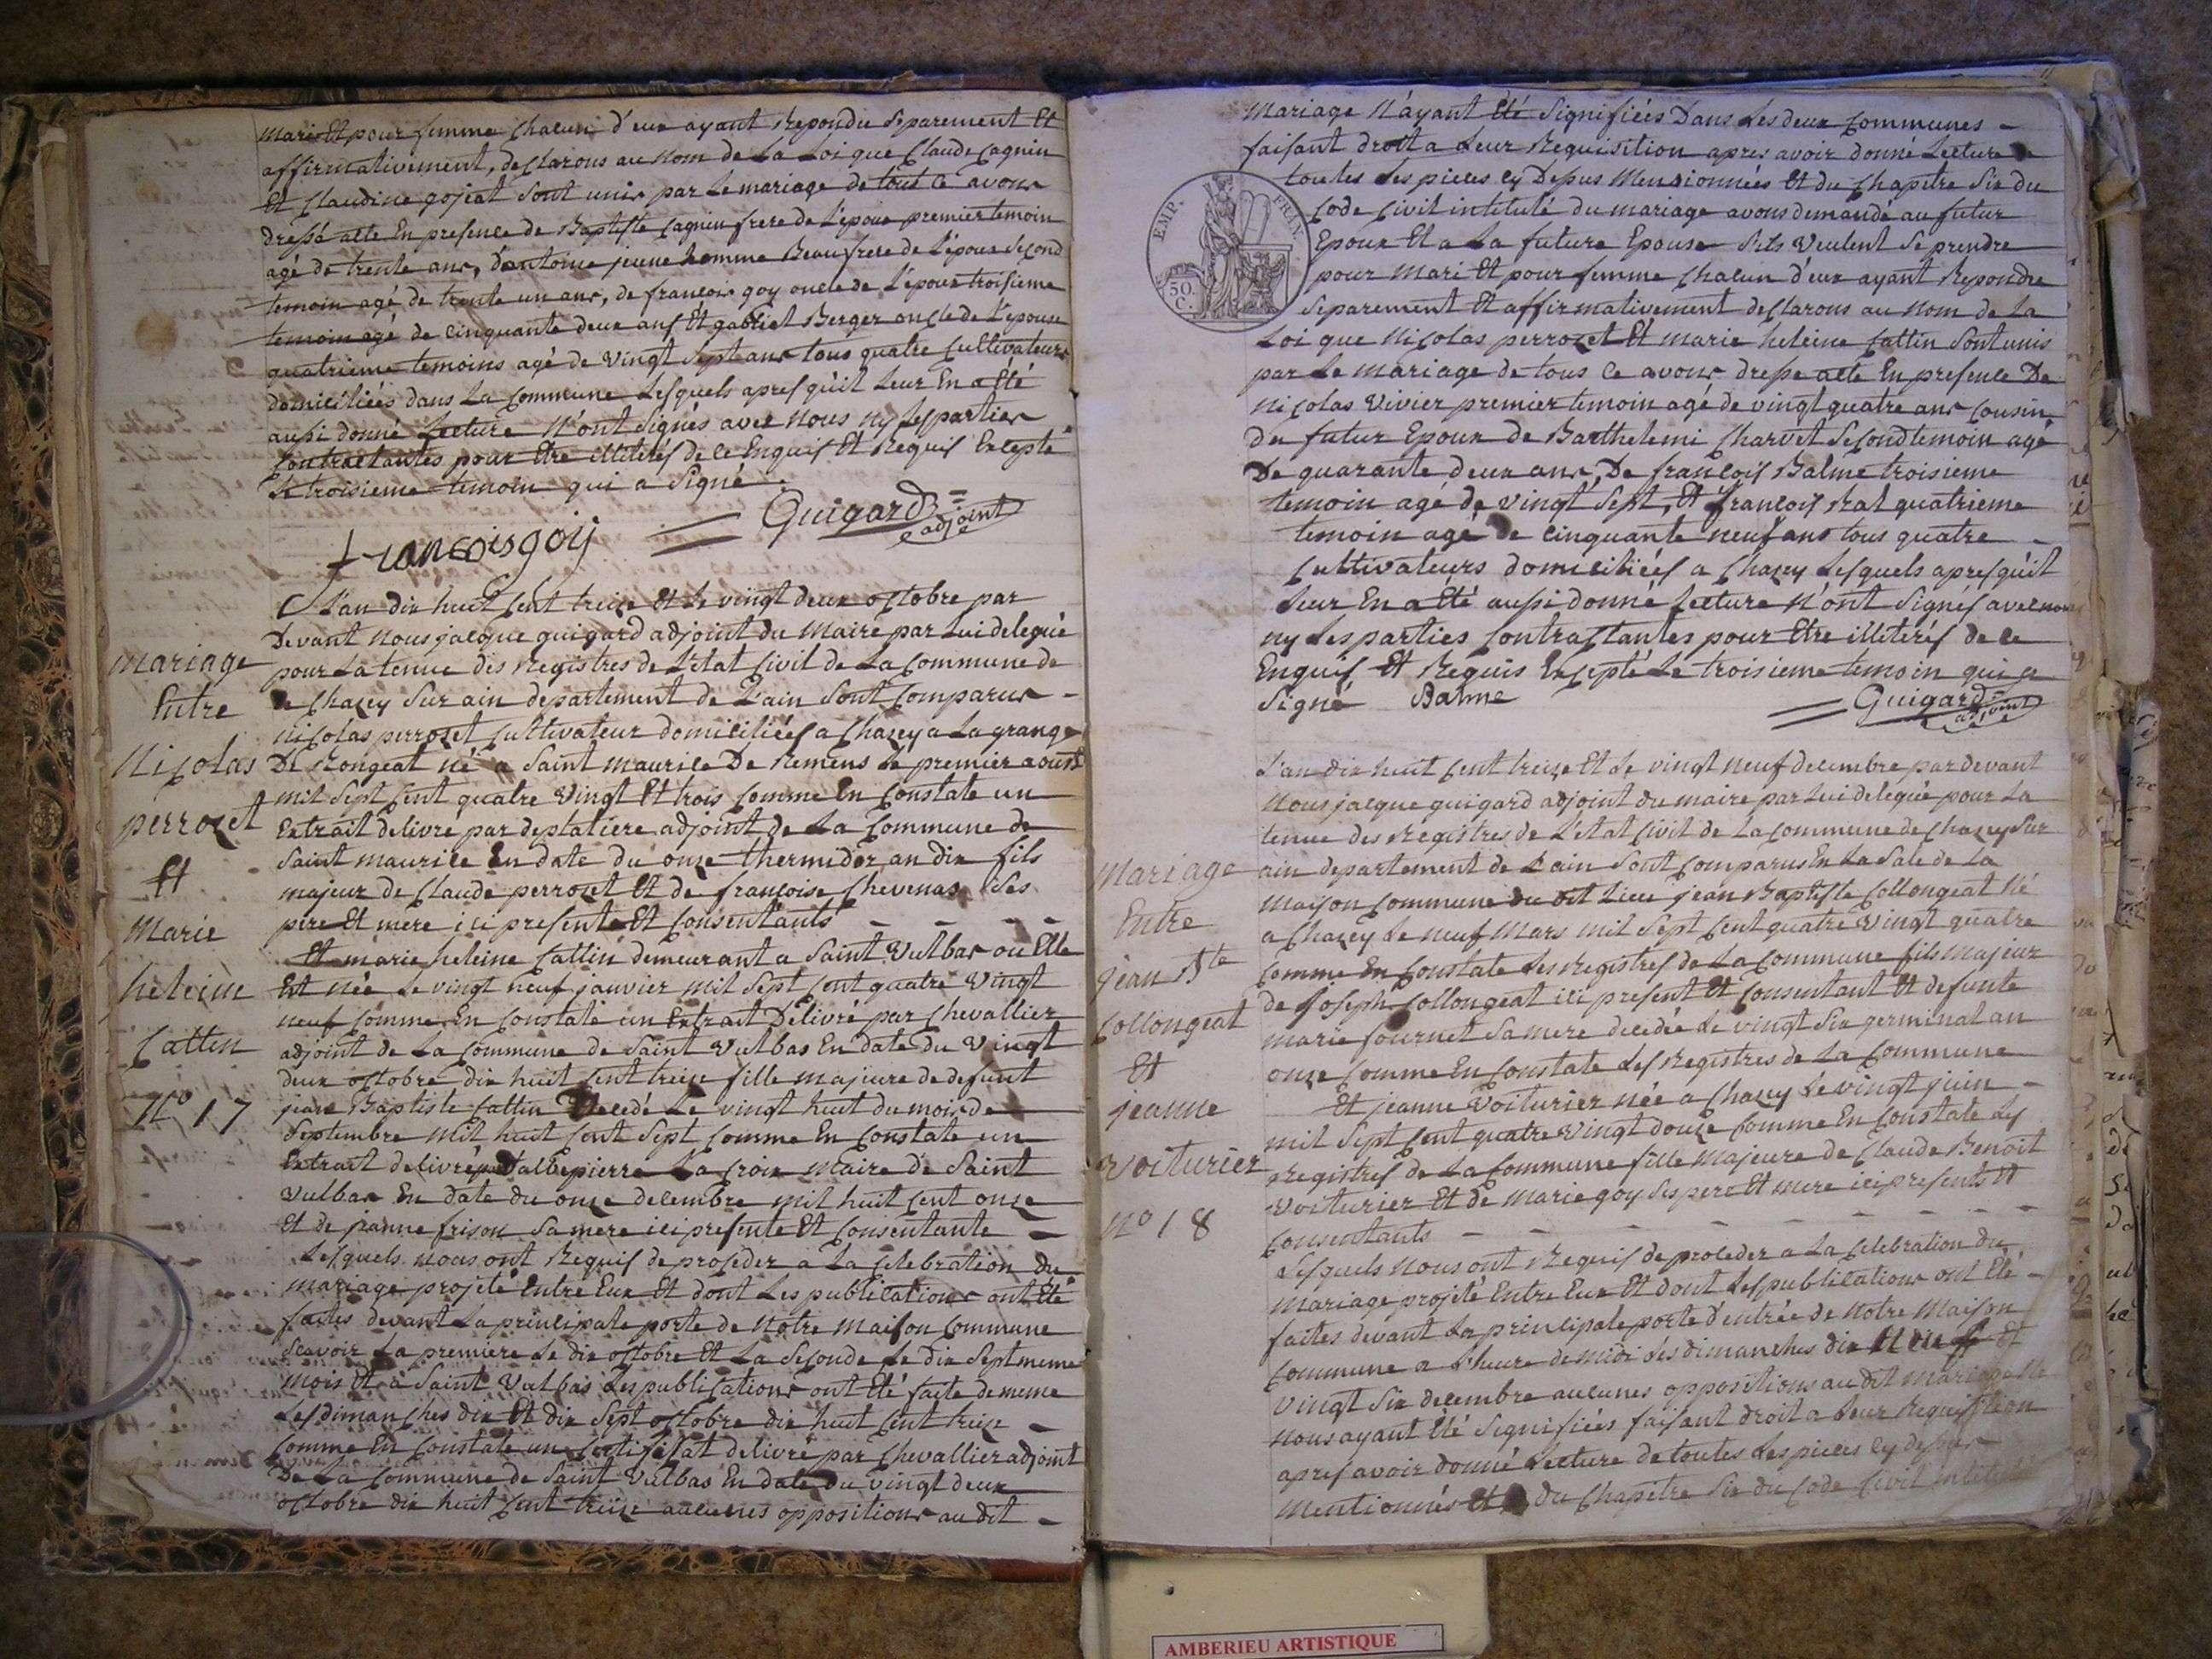 mari Et pour femme chacun d'eux ayant Repondu separement Et
affirmativement, declarons au nom de La Loi que Claude Cagnin
Et Claudine gojeat sont unis par le mariage de tout ce avons
dressé acte En presence de Baptiste Cagnin frere de L'epoux premier temoin
agé de trente ans, d'antoine jeune homme Beaufrere de L'epoux second
temoin agé de trente un ans, de francois goy oncle de L'epoux troisieme
temoin agé de cinquante deux ans Et gabriel Berger oncle de L'epouse
quatrieme temoins agé de vingt sept ans tous quatre cultivateurs
domiciliées dans La commune Lesquels apres qu'il Leur En a Eté
aussi donné Lecture N'ont signés avec nous ny Les parties
contractantes pour Etre illiterés de ce Enquis Et Requis Excepté
Le troisieme temoin qui a signé.
francois goy
Guigard
adjoint
L'an dix huit cent treize Et Le vingt deux octobre par
Devant nous jacque guigard adjoint du Maire par Lui delegué
pour La tenue des Registres de L'etat civil de La commune de
de Chazey sur ain departement de L'ain sont comparus -
Nicolas perrozet cultivateur domiciliées a Chazey a La grange
De Rongeat né a Saint maurice De Remens Le premier aoust
mil sept cent quatre vingt Et trois comme En constate un
Extrait delivré par deplatiere adjoint de La commune de
Saint maurice En date du onze thermidor an dix fils
majeur de Claude perrozet Et de francoise Chevenas ses
pere Et mere ici presents Et consentants - - - -
Et marie heleine Cattin demeurant a Saint Vulbas ou Elle
Est née Le vingt neuf janvier mil sept cent quatre vingt
neuf comme En constate un Extrait Délivré par Chevallier
adjoint de La commune de Saint Vulbas En date du Vingt
deux octobre dix huit cent treize fille majeure de defunt
jean Baptiste Cattin Decedé Le vingt huit du mois de
Septembre mil huit cent sept comme En constate un
Extrait delivré par pierre La Croix Maire de Saint
Vulbas En date du onze decembre mil huit cent onze
Et de jeanne frison sa mere ici presente Et consentante -
Lesquels nous ont Requis de proceder a La celebration du
mariage projeté Entre Eux Et dont Les publications ont Eté
faites devant La principale porte de Notre maison commune
scavoir La premiere Le dix octobre Et La seconde Le dix sept meme
mois Et a Saint Vulbas Les publications ont Eté faite de meme
Les dimanches dix Et dix sept octobre dix huit cent treize -
comme En constate un certificat delivré par Chevallier adjoint
De La commune de Saint Vulbas En date du vingt deux
octobre dix huit cent treize aucunes oppositions au dit -
Mariage
Entre
Nicolas
perrozet
Et
Marie
heleine
Cattin
N° 17
Mariage N'ayant Eté Signifiées Dans Les deux communes -
faisant droit a Leur Requisition apres avoir donné Lecture de
toutes Les pieces cy Depus Mensionnées Et du Chapitre six du
code civil intitulé du mariage avons demandé au futur
Epoux Et a La future Epouse s'ils veulent se prendre
pour mari Et pour femme chacun d'eux ayant Repondre
separement Et affirmativement declarons au nom de La
Loi que Nicolas perrozet Et marie heleine Cattin sont unis
par Le mariage de tous ce avons dresse acte En presence De
Nicolas Vivier premier temoin age de vingt quatre ans cousin
du futur Epoux de Barthelemi Charvet second temoin agé
De quarante deux ans, De francois Balme troisieme
temoin agé de vingt sept, Et francois Ral quatrieme
temoin agé de cinquante neuf ans tous quatre -
cultivateurs domiciliées a Chazey Lesquels apres qu'il
Leur En a Eté aussi donné Lecture N'ont signés avec nous
ny Les parties contractantes pour Etre illiterés de ce
Enquis Et Requis Excepté Le troisieme temoin qui a
Signé Balme
Guigard
adjoint
EMP. FRAN.
50
C.
L'an dix huit cent treize Et Le vingt neuf decembre par devant
Nous jacque guigard adjoint du maire par Lui delegué pour La
tenue des Registres de L'etat civil de La commune de Chazey sur
ain departement de L'ain sont comparus En La sale de La
maison commune du dit Lieu jean Baptiste Collongeat Né
a Chazey Le neuf Mars mil sept cent quatre vingt quatre
comme En constate Les Registres de La commune fils majeur
de Joseph Collongeat ici present Et consentant Et defunte
marie fournet sa mere decedée Le vingt six germinal an
onze comme En constate Les Registres de La commune
Et jeanne Voiturier née a Chazey Le vingt juin -
mil sept cent quatre vingt douze comme En constate Les
Registres de La commune fille majeure de Claude Benoit
Voiturier Et de marie goy ses pere Et mere ici presents Et
consentants - - - - - -
Lesquels nous ont Requis de proceder a La celebration du
mariage projeté Entre Eux Et dont Les publications ont Eté -
faites devant La principale porte d'entrée de Notre Maison
commune a L'heure de midi Les dimanches dix Neuf Et
vingt six decembre aucunes oppositions au dit mariage Ne
nous ayant Eté Signifiées faisant droit a Leur Requisition
apres avoir donné Lecture de toutes Les pieces cy dessus
mentionnés Et du Chapitre six du code civil intitulé
Mariage
Entre
jean Bte
Collongeat
Et
jeanne
Voiturier
N° 18
AMBERIEU ARTISTIQUE